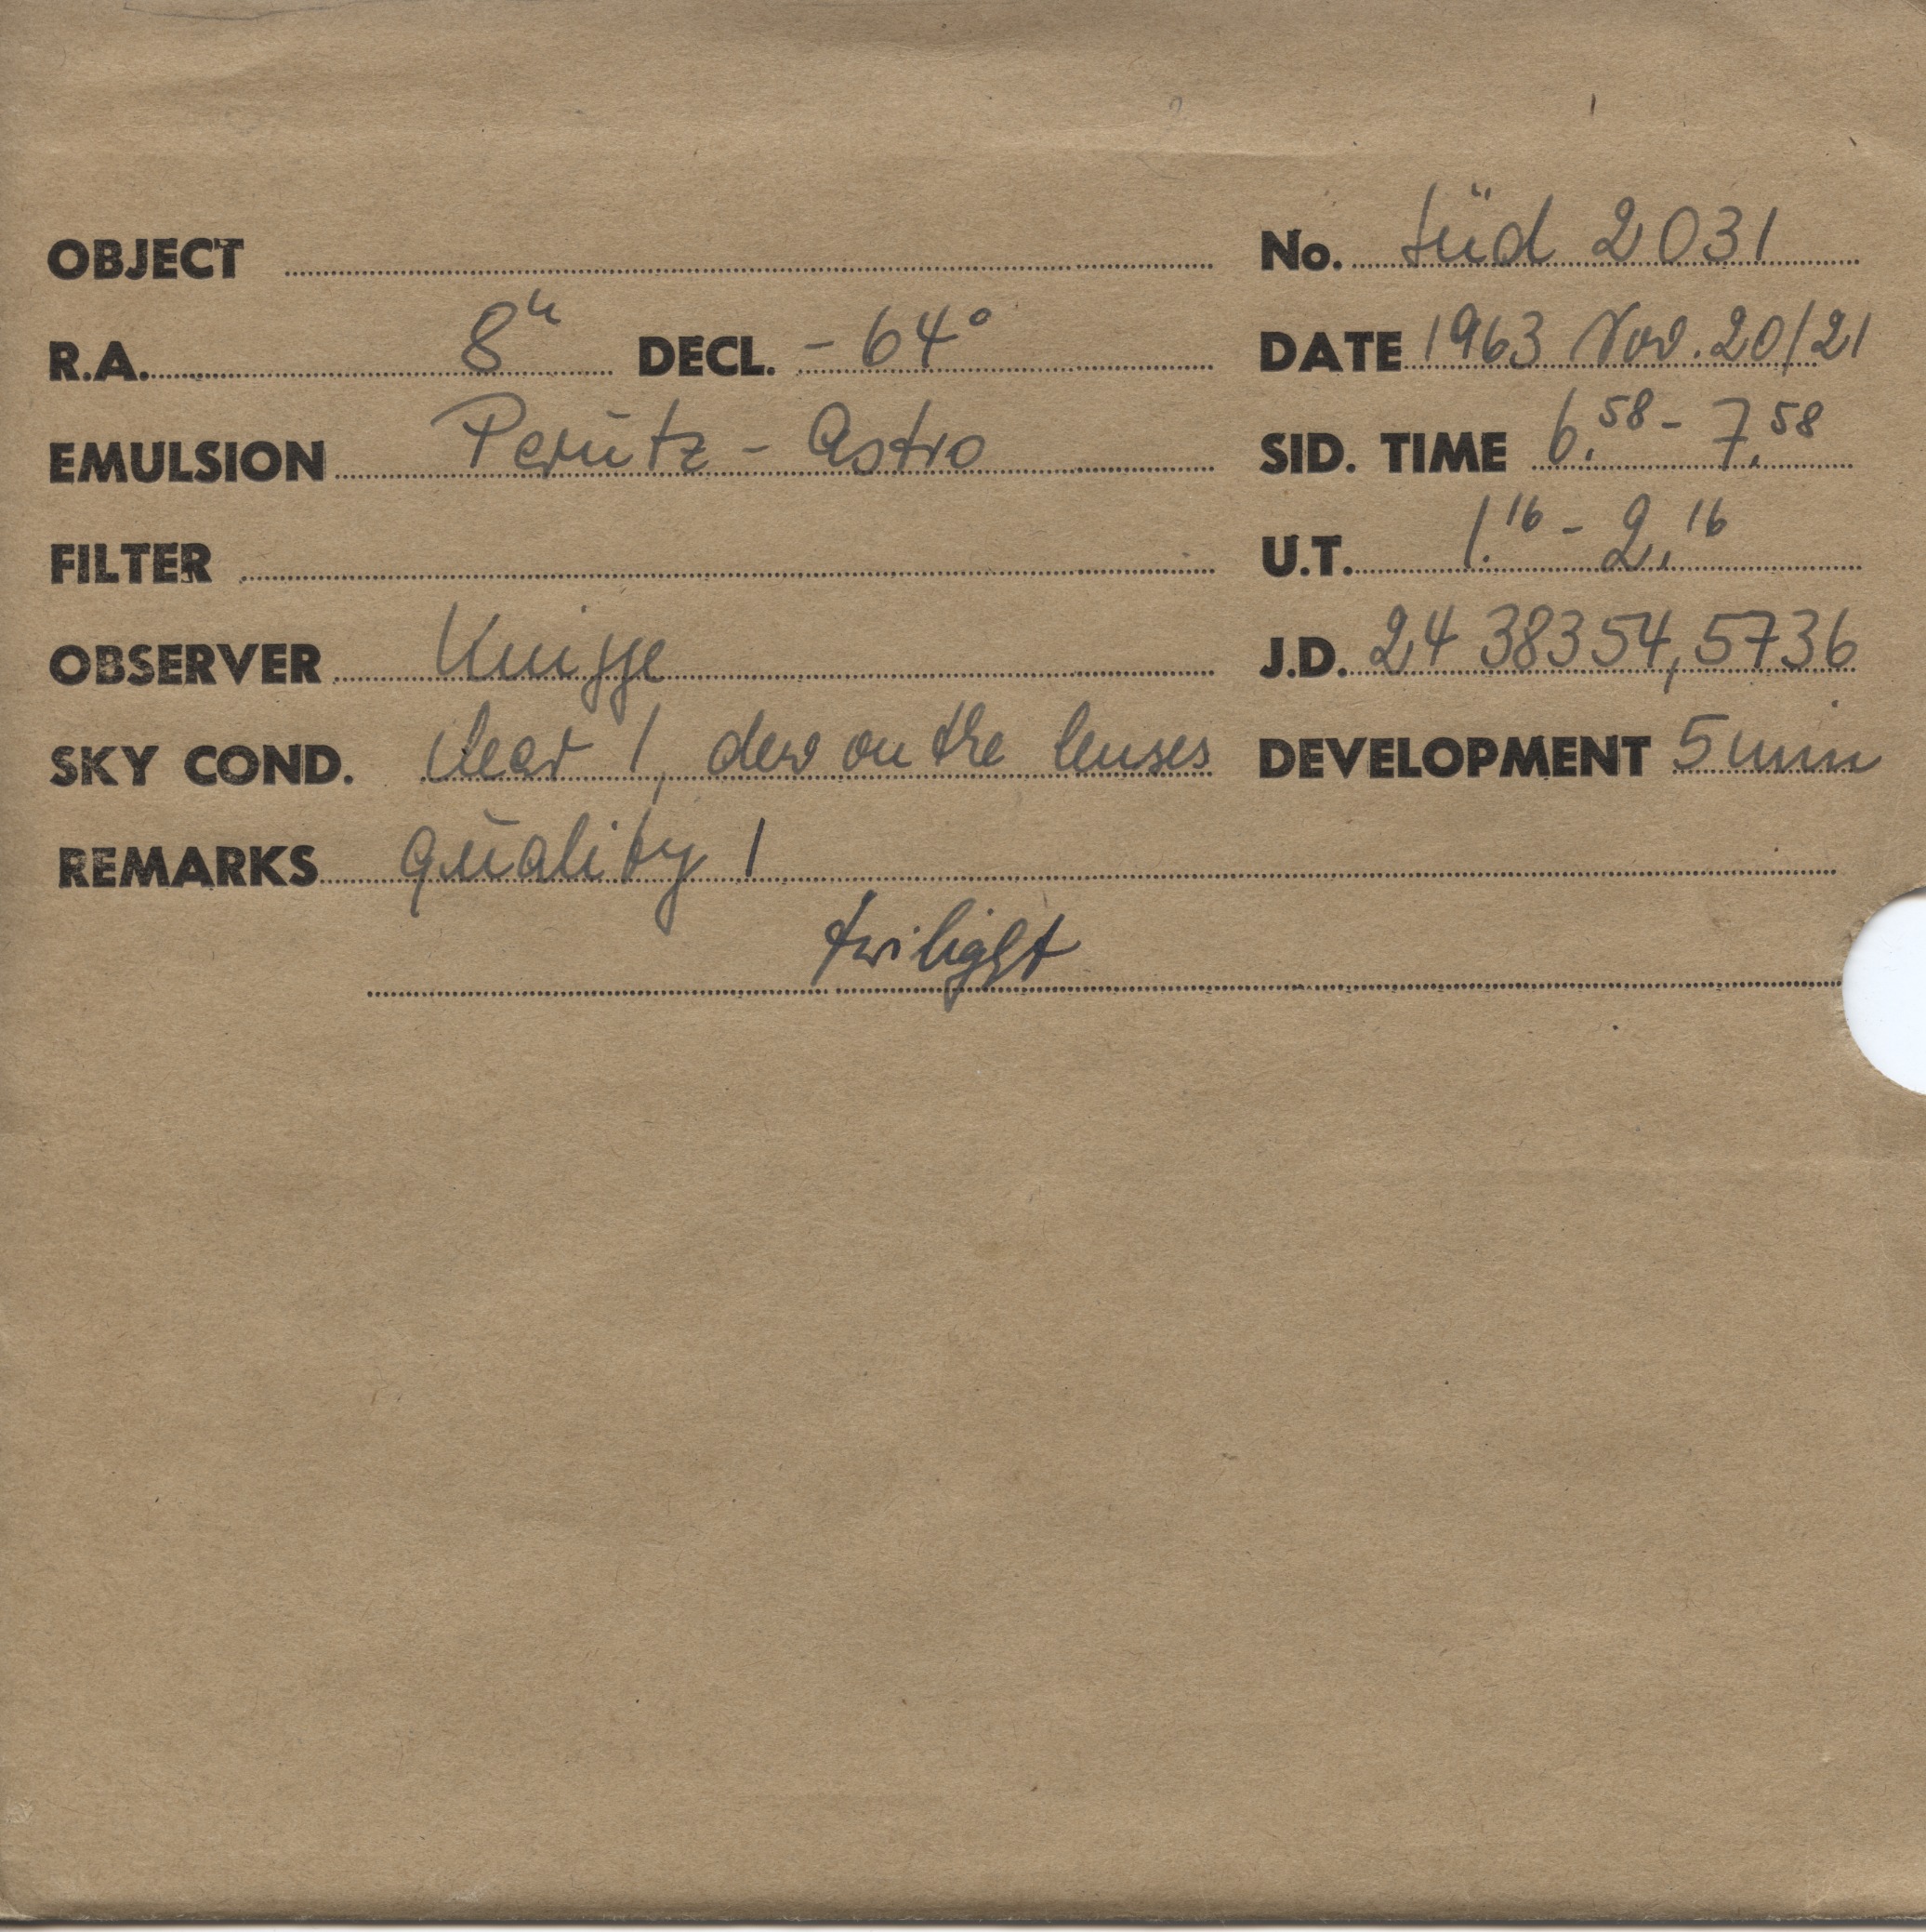 OBJECT
No. Süd 2031
R.A. 8h DECL. - 64°
DATE 1963 Nov. 20/21
EMULSION Perutz - Astro
SID. TIME 6.58 - 7.58
FILTER
U.T. 1.16 - 2.16
OBSERVER Knigge
J.D. 24 38354,5736
SKY COND. clear 1, dew on the lenses
DEVELOPMENT 5 min
REMARKS quality 1
twilight